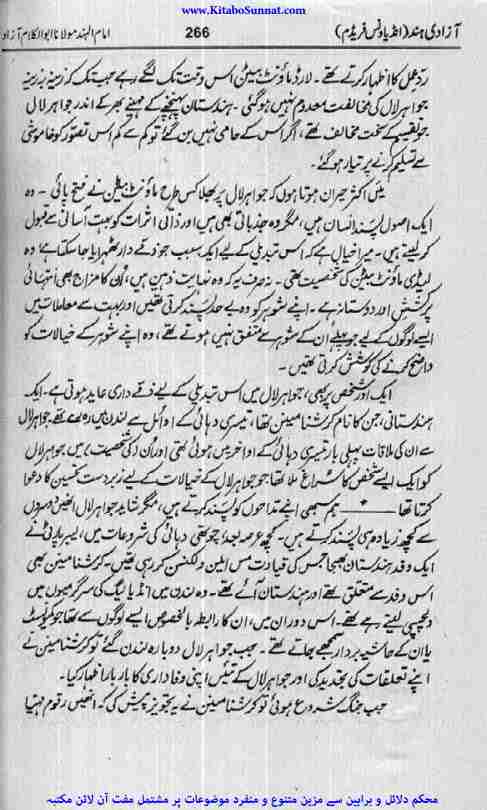 www.KitaboSunnat.com
آزادیٔ ہند (انڈیا ونس فریڈم)
266
امام الہند مولانا ابوالکلام آزاد
ردِّ عمل کا اظہار کرتے تھے۔ لارڈ ماؤنٹ بیٹن اس وقت تک لگے رہے جب تک کہ زینہ بہ زینہ
جواہر لال کی مخالفت معدوم نہیں ہو گئی۔ ہندستان پہنچنے کے مہینے بھر کے اندر جواہر لال
جو تقسیم کے سخت مخالف تھے، اگر اس کے حامی نہیں بن گئے تو کم سے کم اس تصور کو خاموشی
سے تسلیم کرنے پر تیار ہو گئے۔
میں اکثر حیران ہوتا ہوں کہ جواہر لال پر بھلا کس طرح ماؤنٹ بیٹن نے فتح پائی۔ وہ
ایک اصول پسند انسان ہیں، مگر وہ جذباتی بھی ہیں اور ذاتی اثرات کو بہت آسانی سے قبول
کر لیتے ہیں۔ میرا خیال ہے کہ اس تبدیلی کے لیے ایک سبب جو ذمے دار ٹھہرایا جا سکتا ہے وہ
لیڈی ماؤنٹ بیٹن کی شخصیت تھی۔ نہ صرف یہ کہ وہ نہایت ذہین ہیں، اُن کا مزاج بھی انتہائی
پُرکشش اور دوستانہ ہے۔ اپنے شوہر کو وہ بے حد پسند کرتی تھیں اور بہت سے معاملات میں
ایسے لوگوں کے لیے جو پہلے اُن کے شوہر سے متفق نہیں ہوتے تھے، وہ اپنے شوہر کے خیالات کو
واضح کرنے کی کوشش کرتی تھیں۔
ایک اور شخص پر بھی، جواہر لال میں اس تبدیلی کے لیے ذمے داری عاید ہوتی ہے۔ ایک
ہندستانی، جن کا نام کرشنا مینن تھا، تیسری دہائی کے اوائل سے لندن میں رہ رہے تھے۔ جواہر لال
سے ان کی ملاقات پہلی بار تیسری دہائی کے اواخر میں ہوئی تھی اور اُن کی شخصیت میں جواہر لال
کو ایک ایسے شخص کا سُراغ ملا تھا جو جواہر لال کے خیالات کے لیے زبردست تحسین کا دعوا
کرتا تھا ——— ہم سبھی اپنے مداحوں کو پسند کرتے ہیں، مگر شاید جواہر لال انھیں دوسروں
سے کچھ زیادہ ہی پسند کرتے ہیں۔ کچھ عرصہ بعد، چوتھی دہائی کی شروعات میں، لیبر پارٹی نے
ایک وفد ہندستان بھیجا جس کی قیادت مس ایلن ولکنسن کر رہی تھیں۔ کرشنا مینن بھی
اس وفد سے متعلق تھے اور ہندستان آئے تھے۔ وہ لندن میں انڈیا لیگ کی سرگرمیوں میں
دلچسپی لیتے رہے تھے۔ اس دوران میں، ان کا رابطہ بالخصوص ایسے لوگوں سے تھا جو کمیونسٹ
یا ان کے حاشیہ بردار سمجھے جاتے تھے۔ جب جواہر لال دوبارہ لندن گئے تو کرشنا مینن نے
اپنے تعلقات کی تجدید کی اور جواہر لال کے تئیں اپنی وفاداری کا بار بار اظہار کیا۔
جب جنگ شروع ہوئی تو کرشنا مینن نے یہ تجویز پیش کی کہ انھیں رقوم مہیا
محکم دلائل و براہین سے مزین متنوع و منفرد موضوعات پر مشتمل مفت آن لائن مکتبہ